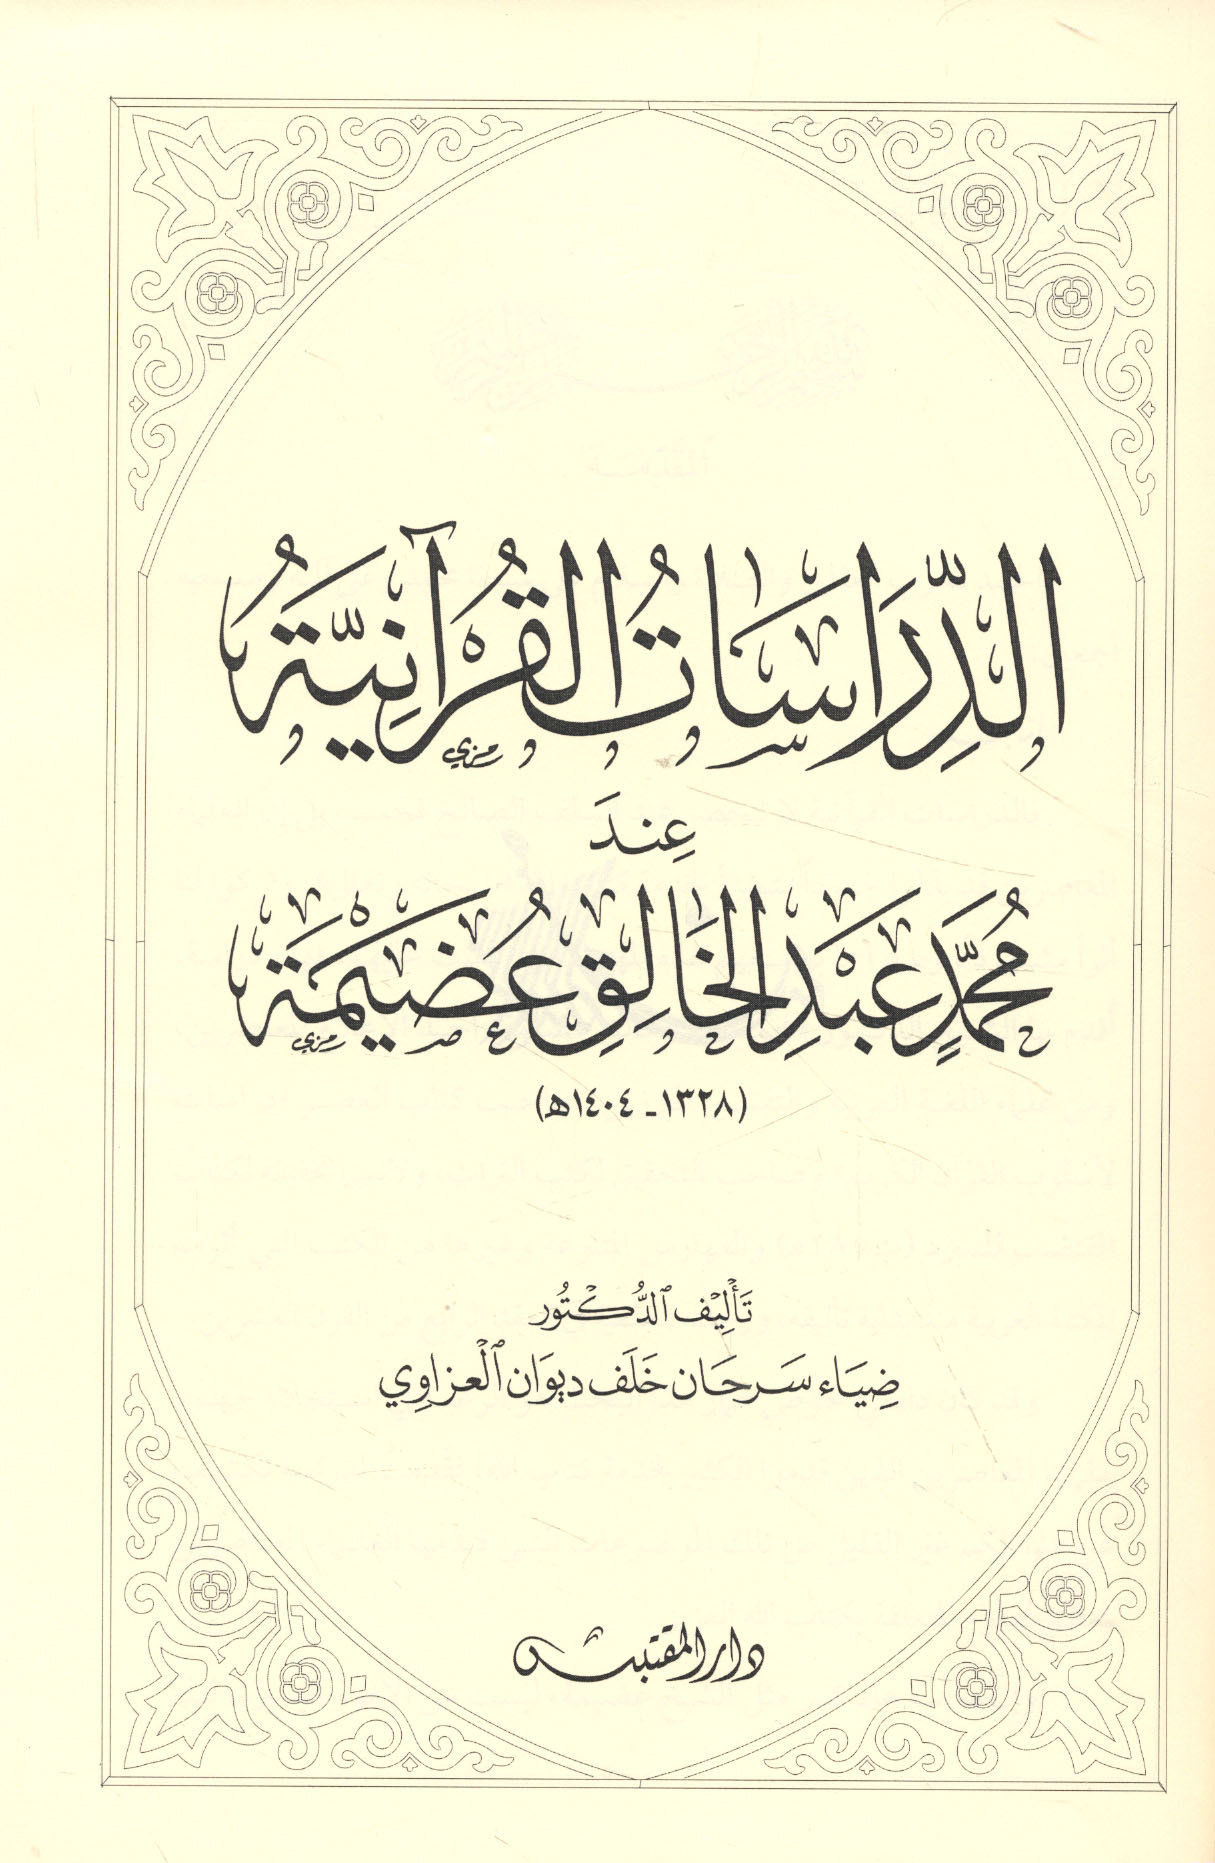 الدِّرَاسَاتُ القُرْآنِيَّةُ
عِندَ
مُحَمَّدٍ عَبْدِ الخَالِقِ عُضَيْمَةَ
(١٣٢٨ - ١٤٠٤هـ)
تَأْلِيْف ٱلدُّكْتُور
ضِيَاء سَرحَان خَلَف ديوَان ٱلْعزاوِي
دار المقتبس